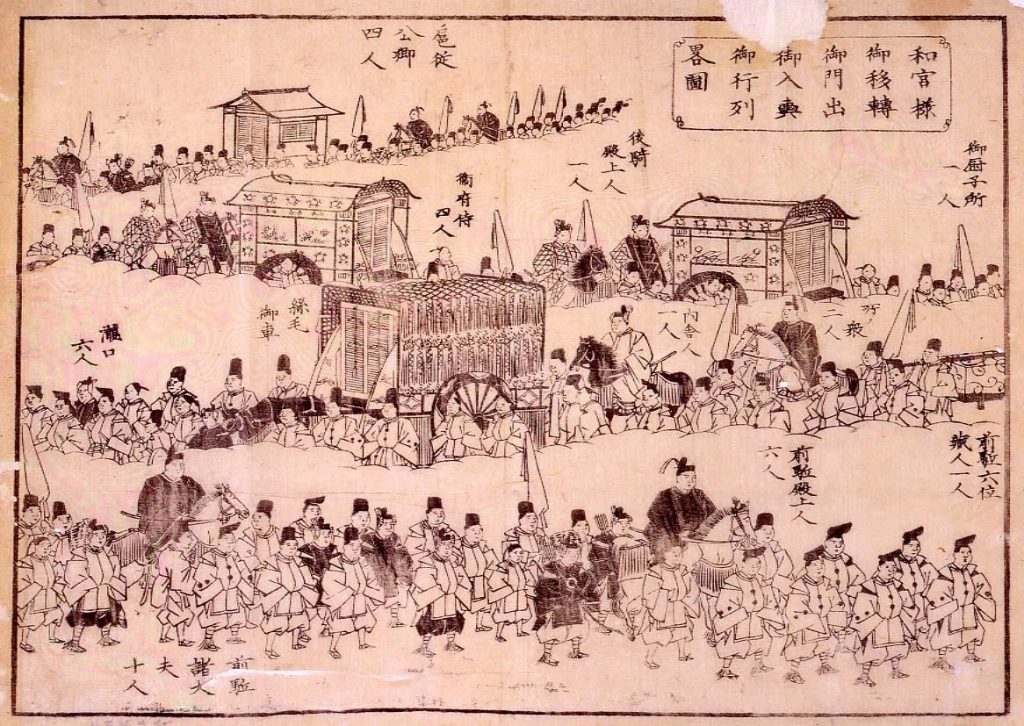 和宮様
御移轉
御門出
御入輿
御行列
畧圖
扈従
公卿
四人
御厨子所
一人
後騎
殿上人
一人
衛府侍
四人
所衆
二人
内舎人
一人
絲毛
御車
瀧口
六人
前駈六位
蔵人一人
前駈殿上人
六人
前駈
諸大
夫
十人